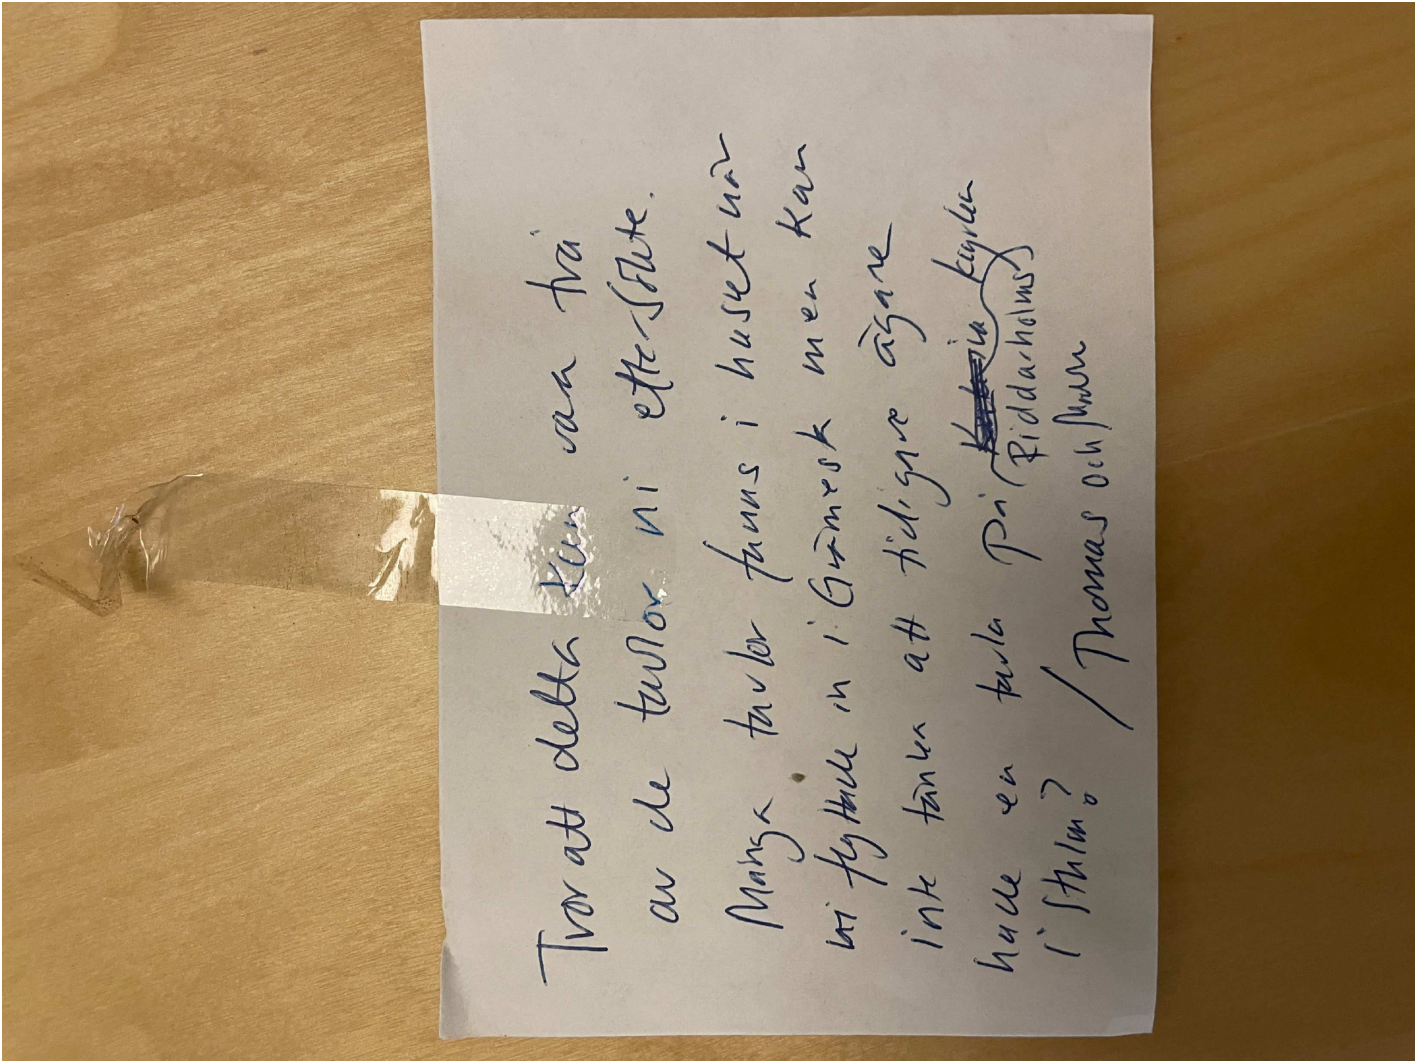 Tror att detta kan vara två
av de tavlor ni eftersökte.
Många tavlor fanns i huset när
ni flyttade in i Grämesk men kan
inte tänka att tidigare ägare
hade en tavla på kyrka
Riddarholms
i Sthlm?
/Thomas och